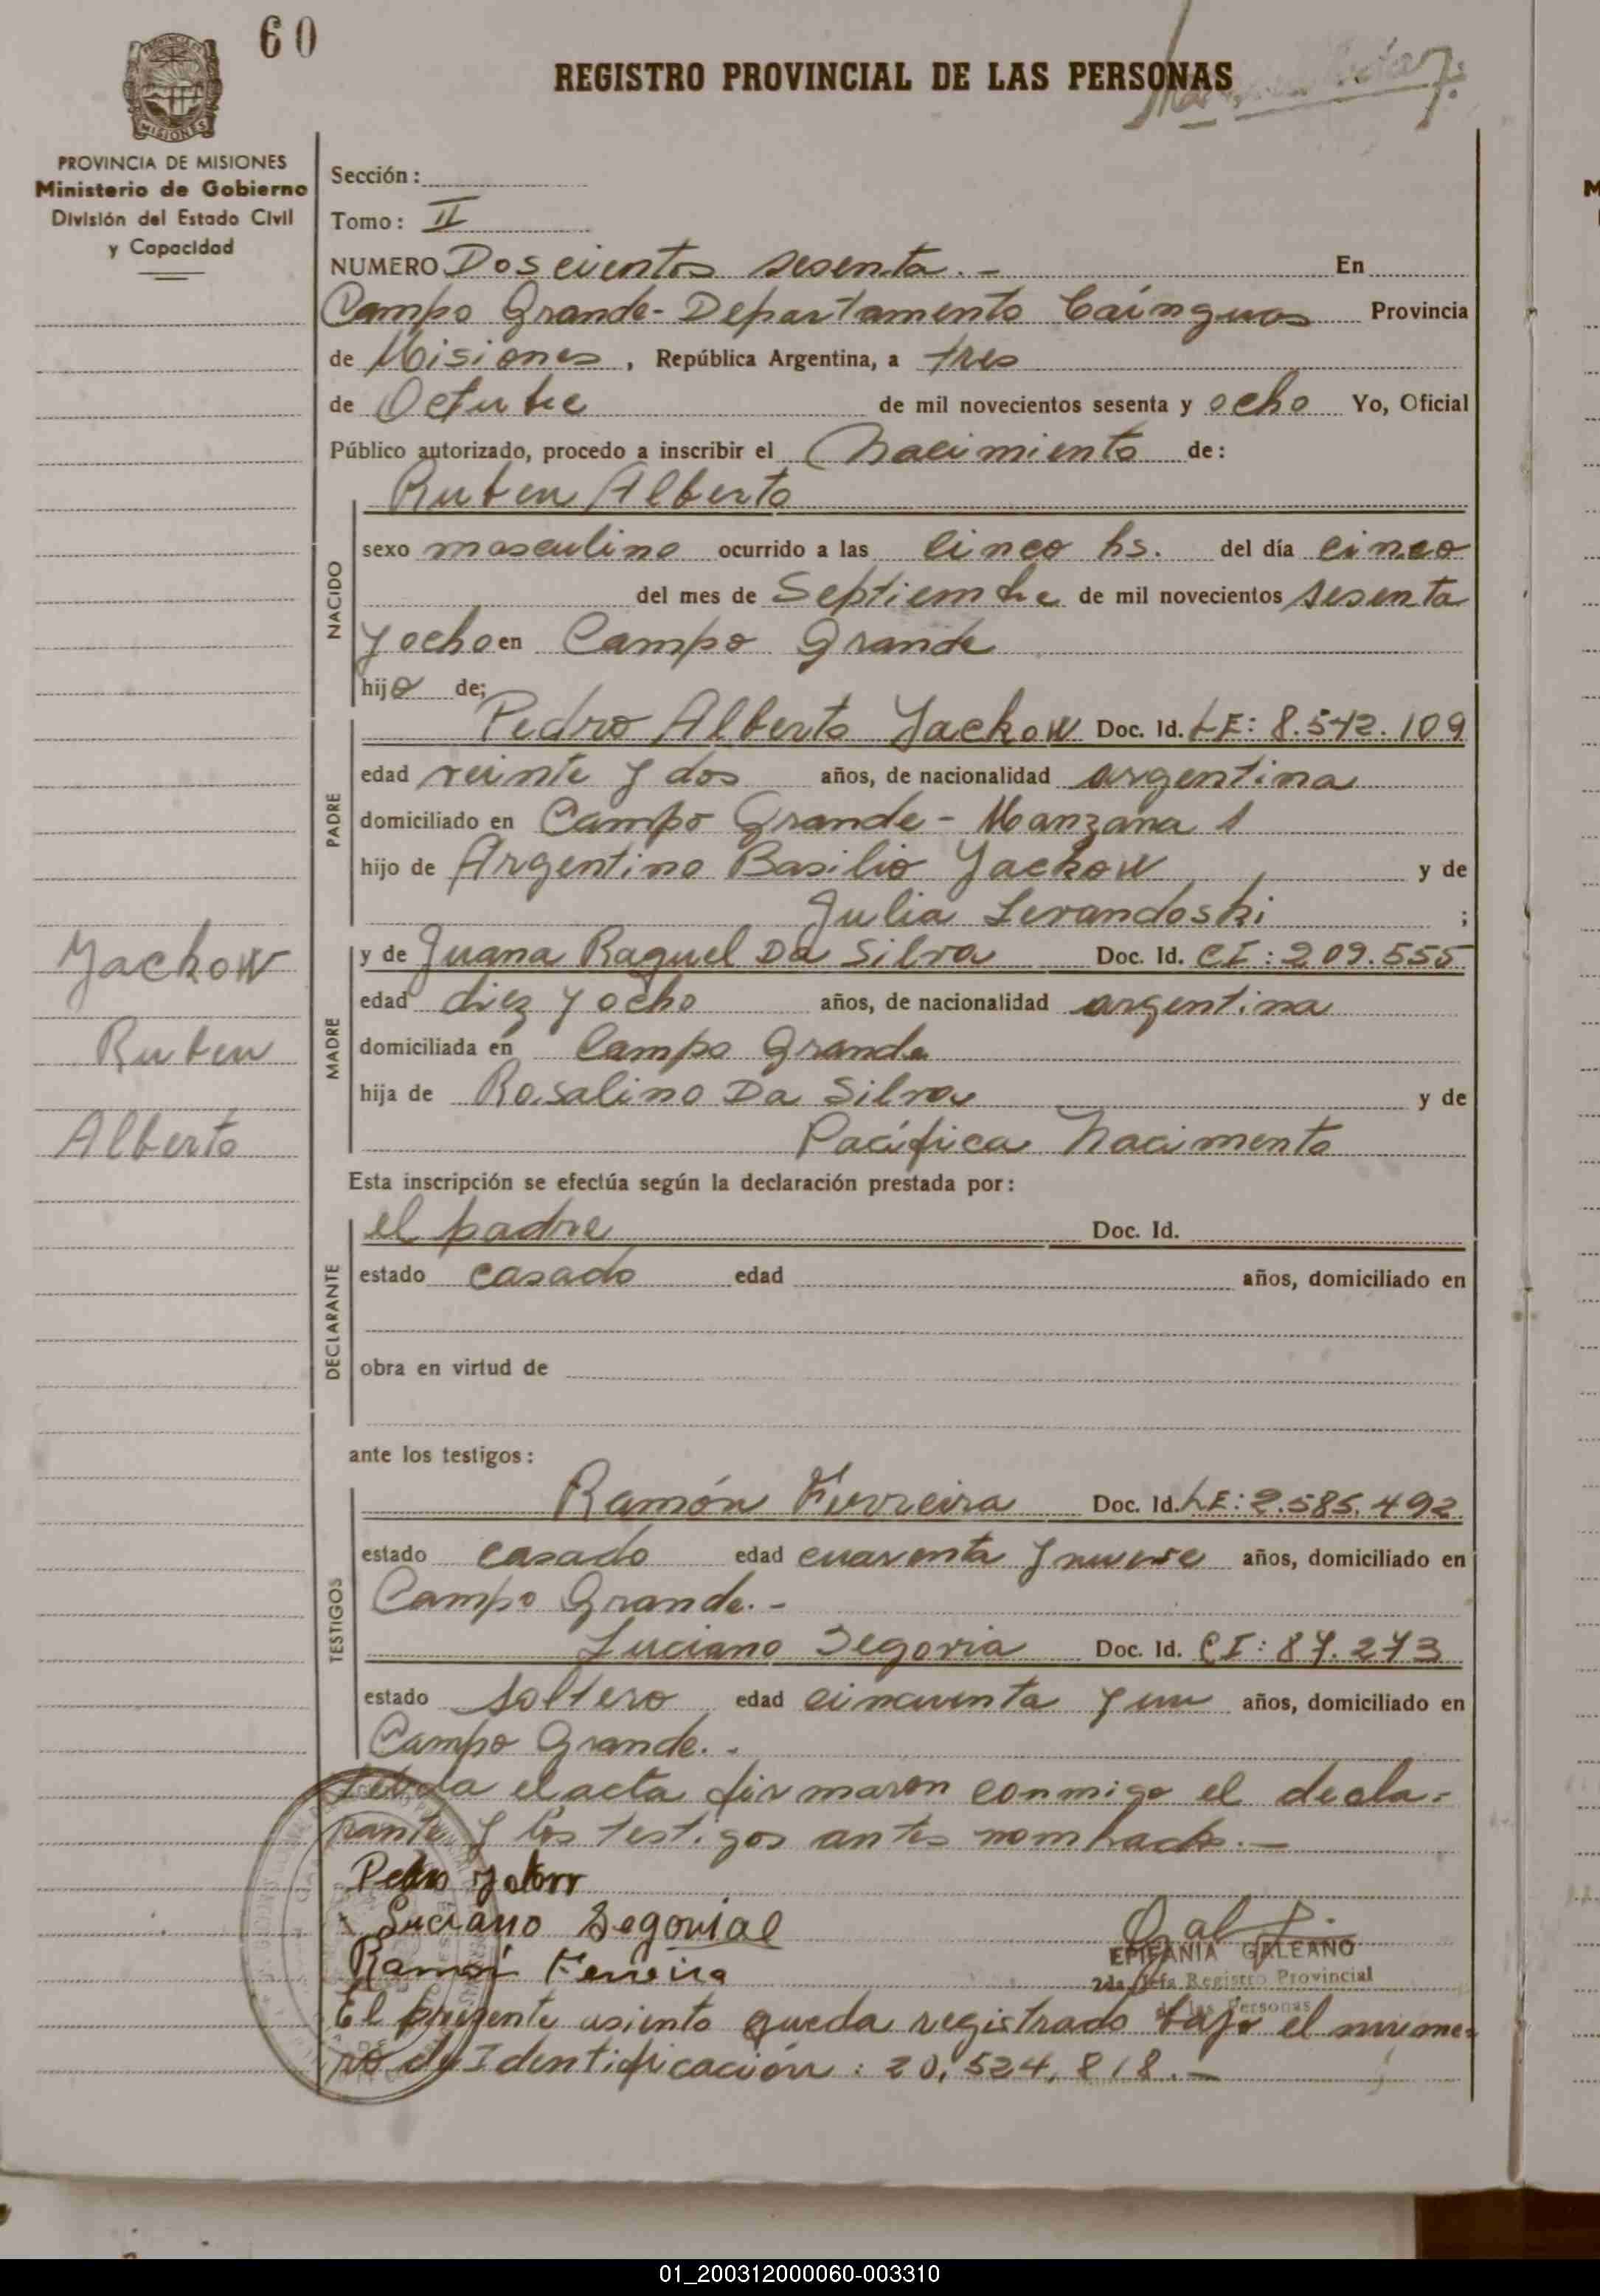 60
REGISTRO PROVINCIAL DE LAS PERSONAS
MISIONES
PROVINCIA DE MISIONES
Ministerio de Gobierno
División del Estado Civil
y Capacidad
Sección:
Tomo: II
NUMERO Doscientos sesenta.- En
Campo Grande - Departamento Caínguas Provincia
de Misiones, República Argentina, a tres
de Octubre de mil novecientos sesenta y ocho Yo, Oficial
Público autorizado, procedo a inscribir el Nacimiento de:
Ruben Alberto
NACIDO
sexo masculino ocurrido a las cinco hs. del día cinco
del mes de Septiembre de mil novecientos sesenta
y ocho en Campo Grande
hijo de;
PADRE
Pedro Alberto Yackow Doc. Id. LE: 8.542.109
edad veinte y dos años, de nacionalidad argentina
domiciliado en Campo Grande - Manzana 1
hijo de Argentino Basilio Yackow y de
Julia Levandoski ;
Yackow
Ruben
Alberto
MADRE
y de Juana Raquel Da Silva Doc. Id. CI: 209.555
edad diez y ocho años, de nacionalidad argentina
domiciliada en Campo Grande
hija de Rosalino Da Silva y de
Pacífica Nacimento
Esta inscripción se efectúa según la declaración prestada por:
DECLARANTE
el padre Doc. Id.
estado casado edad años, domiciliado en
obra en virtud de
ante los testigos:
TESTIGOS
Ramón Ferreira Doc. Id. LE: 2.585.492
estado casado edad cuarenta y nueve años, domiciliado en
Campo Grande.-
Luciano Segovia Doc. Id. CI: 87.273
estado soltero edad cincuenta y un años, domiciliado en
Campo Grande.-
Leida el acta firmaron conmigo el decla-
rante y los testigos antes nombrados.-
Pedro
Luciano Segovia
Ramón Ferreira
EPIFANIA GALEANO
2da Jefa Registro Provincial
de las Personas
El presente asiento queda registrado bajo el núme-
ro de Identificación: 20.524.818.-
01_200312000060-003310